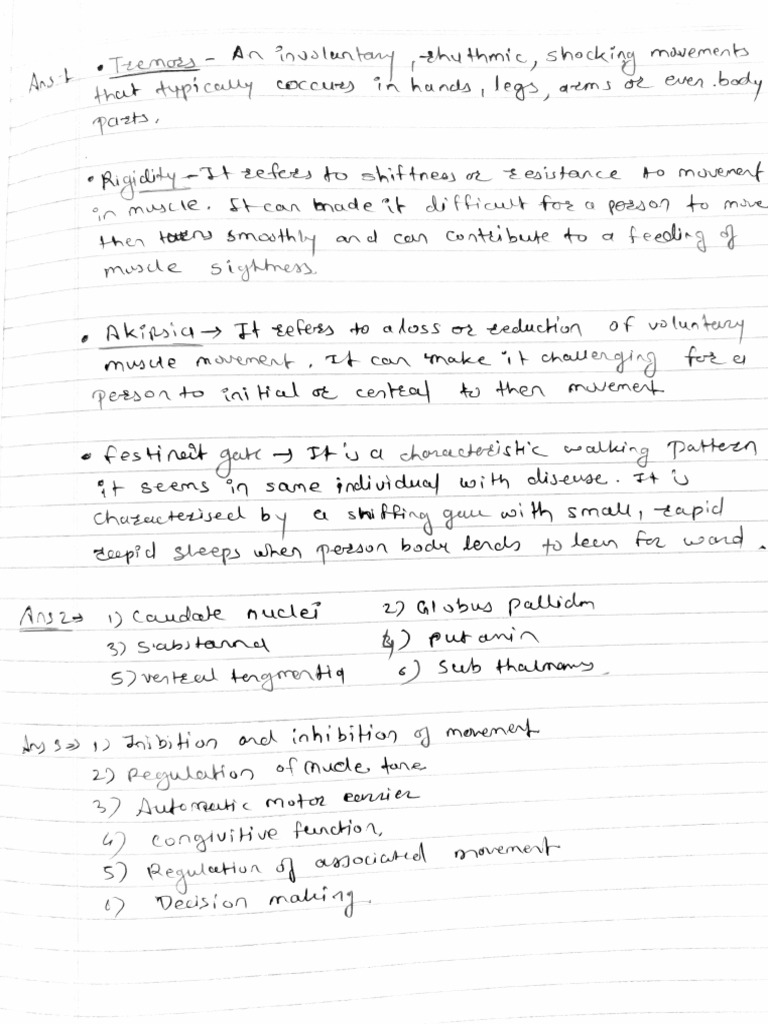 Ans:1 • Tremors - An involuntary, rhuthmic, shocking movements
that typically coccurs in hands, legs, arms or even body
parts.
• Rigidity - It refers to shiftness or resistance to movement
in muscle. It can made it difficult for a person to move
then smoothly and can contribute to a feeding of
muscle sightness.
• Akipsia → It refers to a loss or reduction of voluntary
muscle movement. It can make it challenging for a
person to initial or central to then movement
• festineit gate → It is a characteristic walking pattern
it seems in same individual with disease. It is
characterised by a shiffing gau with small, rapid
reepid sleeps when person body lends to leen for ward.
Ans 2→ 1) Caudate nuclei 2) Globus pallidm
3) Substanna 4) putanin
5) vertral tengmentia 6) Sub thalnamus
Ans 3→ 1) Inibition and inhibition of movement
2) Regulation of mucle tone
3) Automatic motor carrier
4) Congivitive function,
5) Regulation of associated movement
6) Decision making.